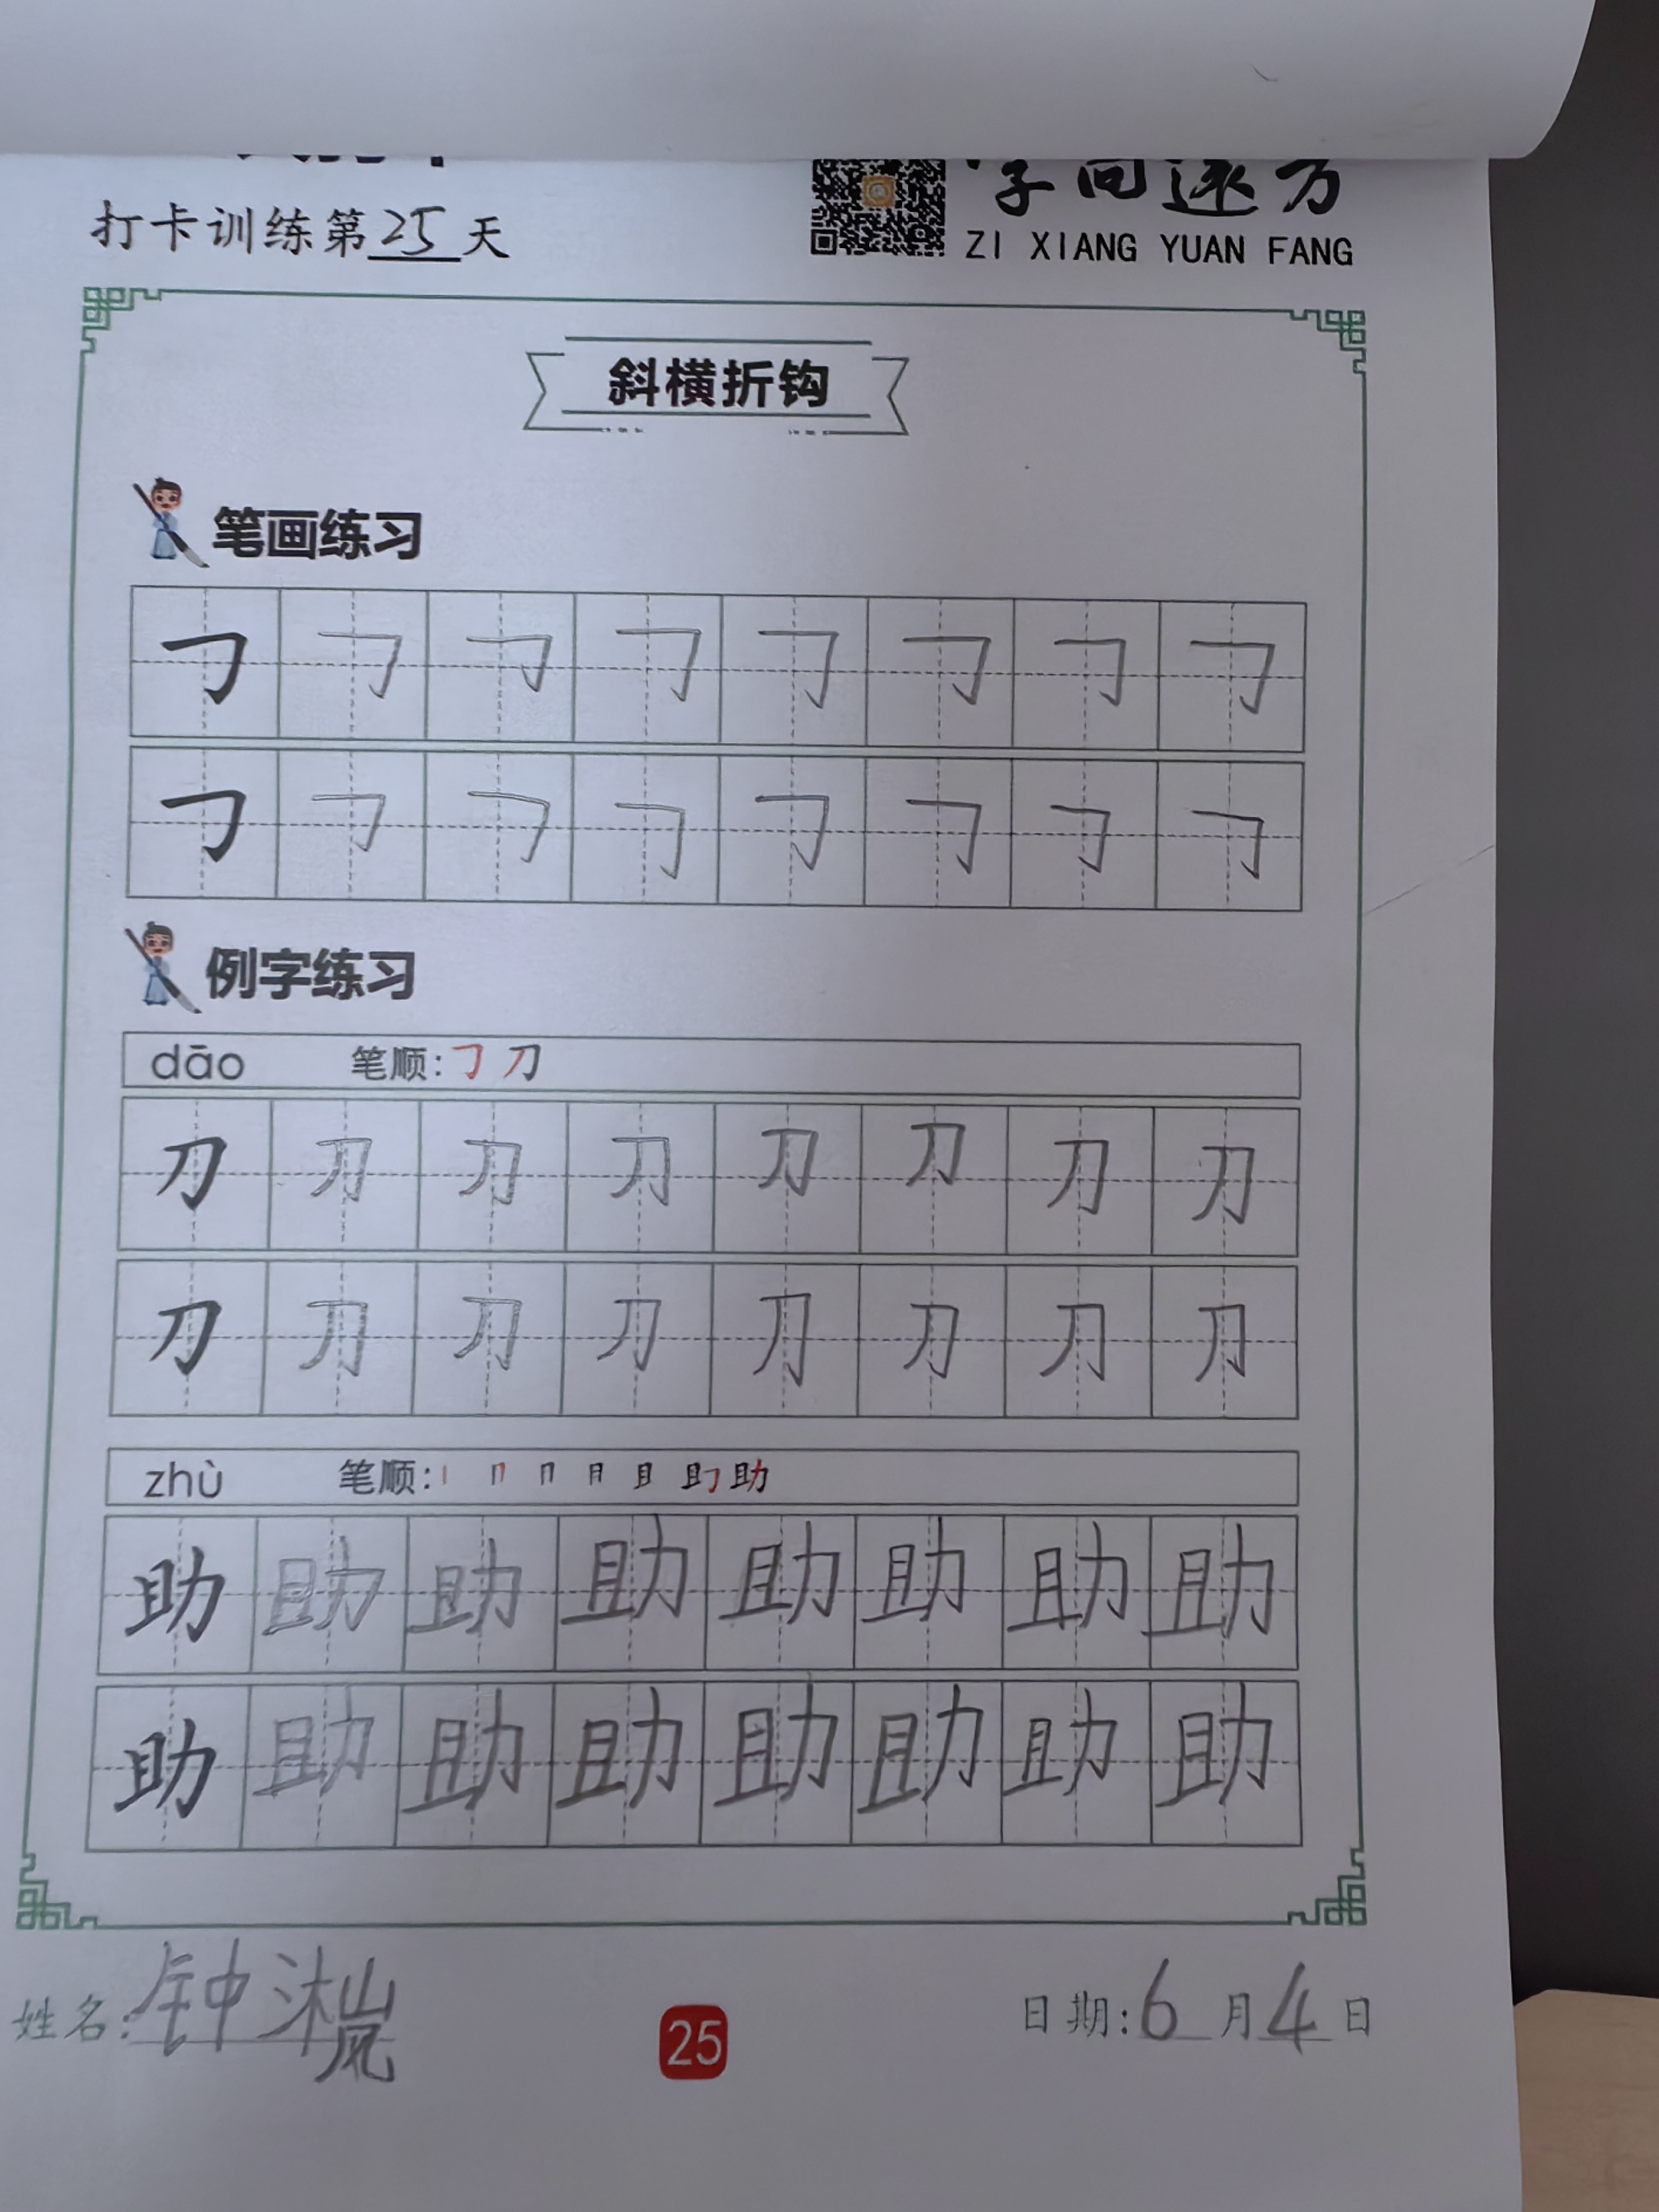 字向远方
打卡训练第25天
ZI XIANG YUAN FANG
斜横折钩
笔画练习
𠃌 𠃌 𠃌 𠃌 𠃌 𠃌 𠃌 𠃌
𠃌 𠃌 𠃌 𠃌 𠃌 𠃌 𠃌 𠃌
例字练习
dāo 笔顺:𠃌 刀
刀 刀 刀 刀 刀 刀 刀 刀
刀 刀 刀 刀 刀 刀 刀 刀
zhù 笔顺:丨 冂 冂 月 且 助 助
助 助 助 助 助 助 助 助
助 助 助 助 助 助 助 助
姓名:钟沐岚
25
日期:6月4日